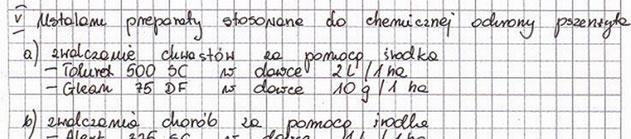 V Ustalam preparaty stosowane do chemicznej ochrony pszenżyta
a) zwalczanie chwastów za pomocą środka
- Tolurex 500 SC w dawce 2L/1 ha
- Glean 75 DF w dawce 10g/1 ha
b) zwalczania chorób za pomocą środka
- Alert 375 SC w dawce 1L/1 ha